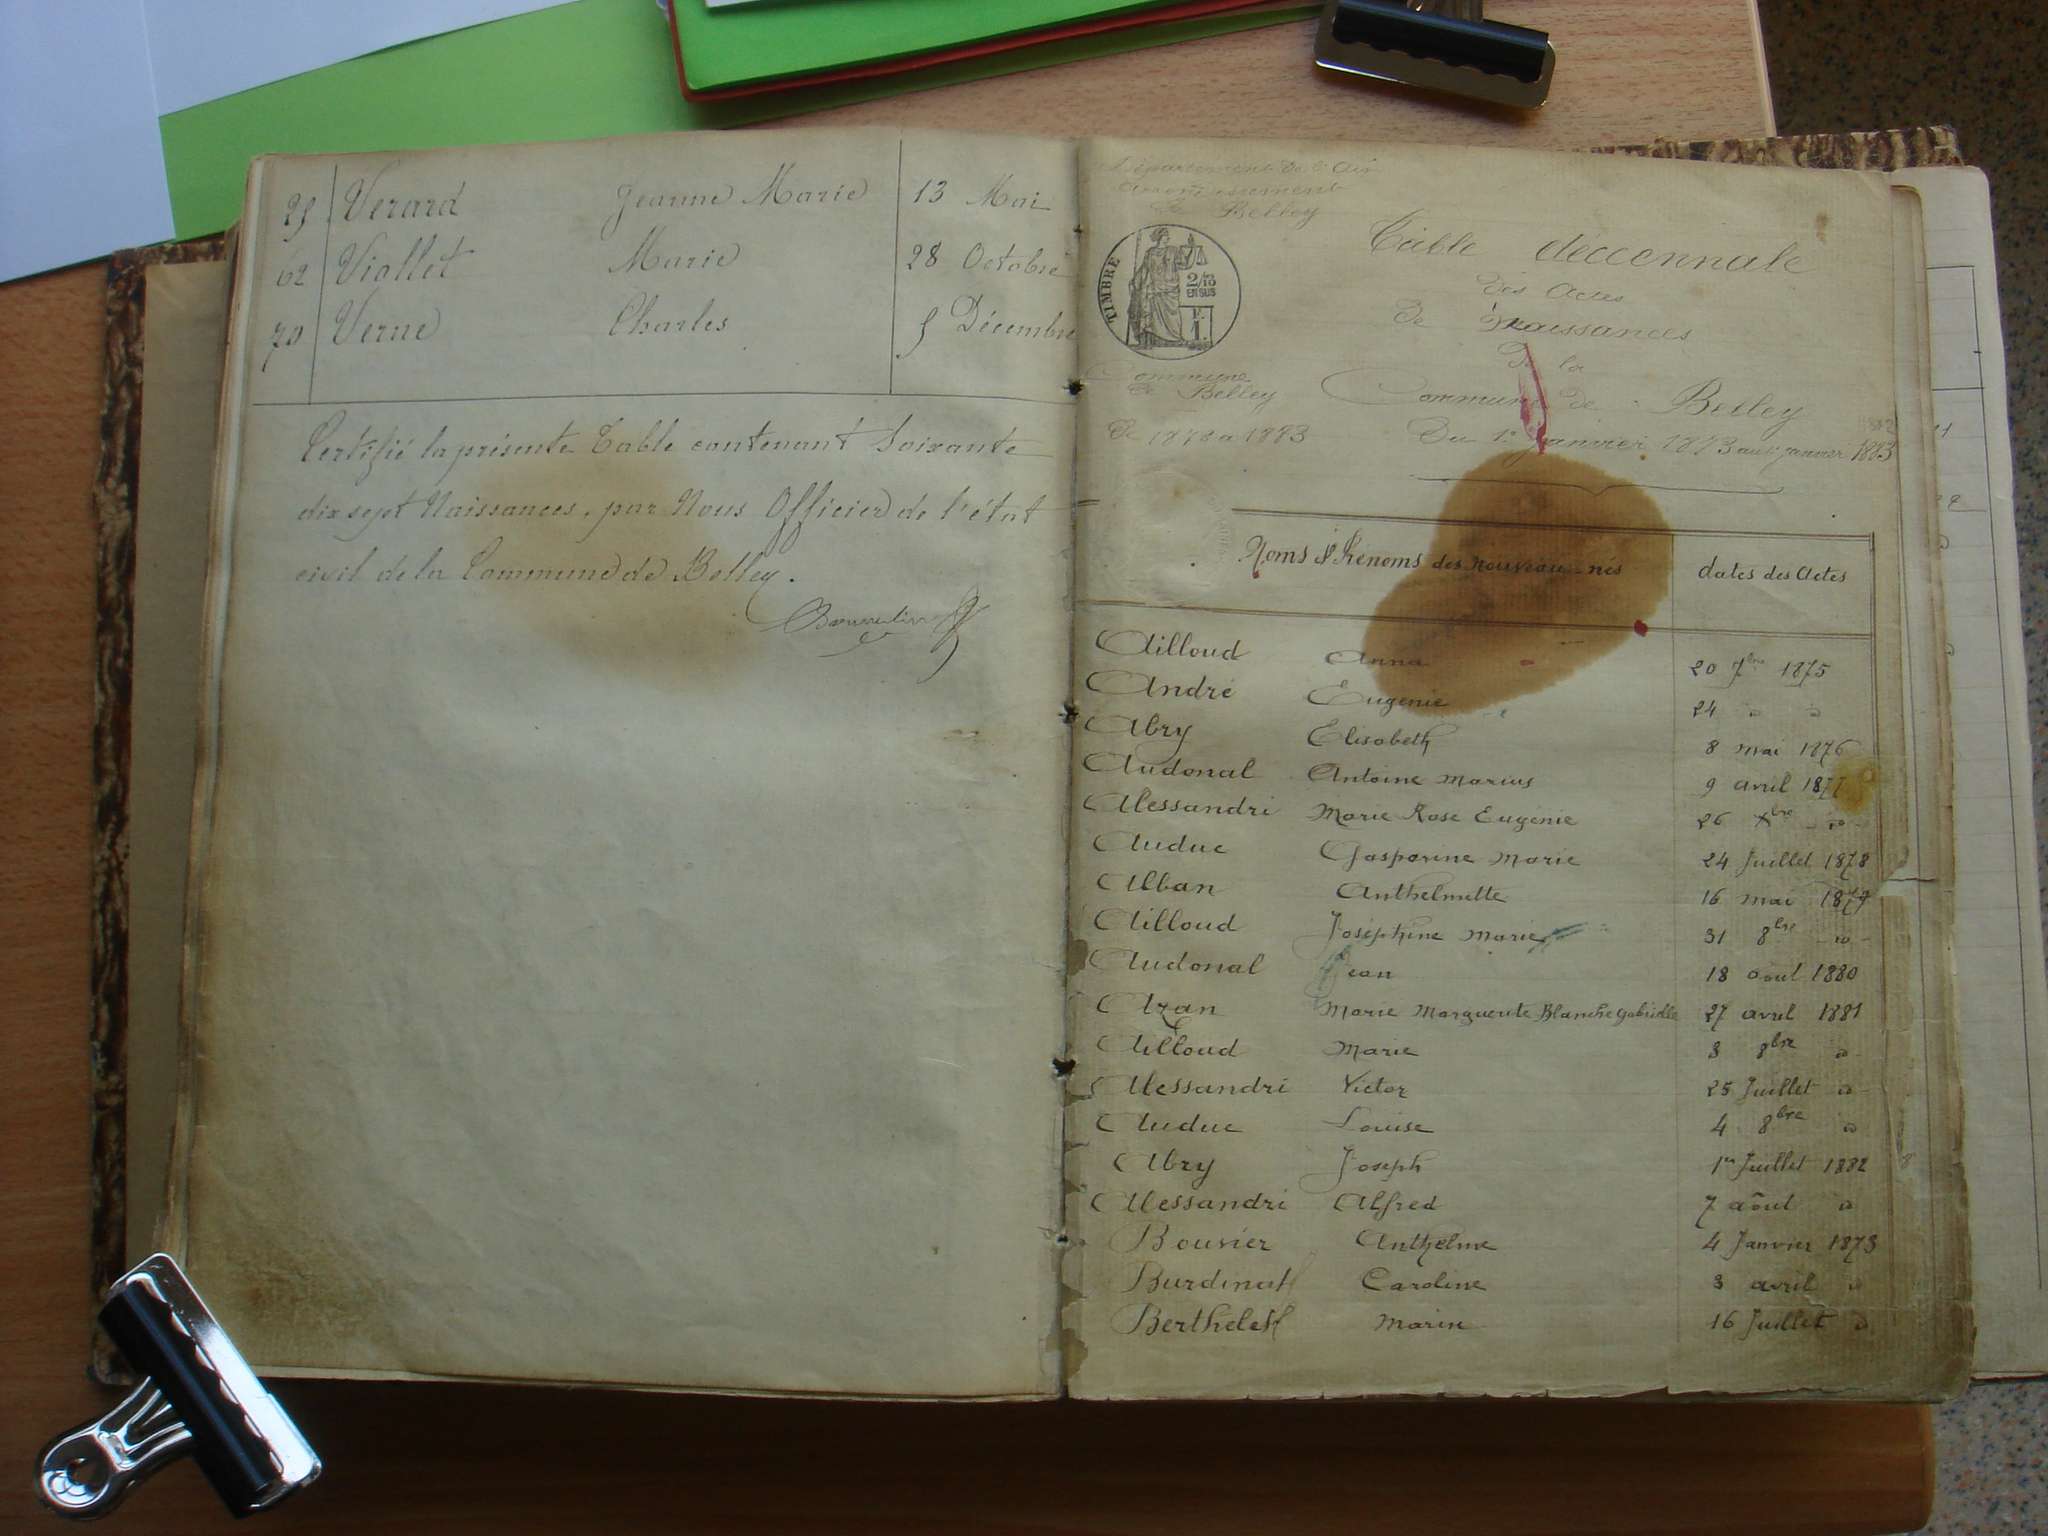 25 Verard Jeanne Marie 13 Mai
62 Viallet Marie 28 Octobre
70 Verne Charles 5 Décembre
Certifié la présente Table contenant Soixante
dix sept Naissances, par Nous Officier de l'état
civil de la Commune de Belley.
Département de l'Ain
arrondissement
de Belley
TIMBRE
2/10
EN SUS
Commune
de Belley
De 1873 a 1883
Table décennale
des actes
de naissances
De la
Commune de Belley
Du 1er janvier 1873 au 1er janvier 1883
Noms & Prénoms des nouveau-nés dates des actes
Ailloud Anna 20 7bre 1875
André Eugenie 24 " "
Abry Elisabeth 8 mai 1876
Audonal Antoine Marius 9 avril 1877
Alessandri Marie Rose Eugenie 26 Xbre -"-
Auduc Gasparine Marie 24 Juillet 1878
Alban Anthelmette 16 mai 1879
Ailloud Joséphine Marie 31 8bre -"-
Audonal Jean 18 aout 1880
Azan Marie Marguerite Blanche Gabrielle 27 avril 1881
Ailloud Marie 3 8bre "
Alessandri Victor 25 Juillet "
Auduc Louise 4 8bre "
Abry Joseph 1er Juillet 1882
Alessandri Alfred 7 août "
Bouvier Anthelme 4 Janvier 1873
Burdinat Caroline 3 avril "
Berthelet Marin 16 Juillet "